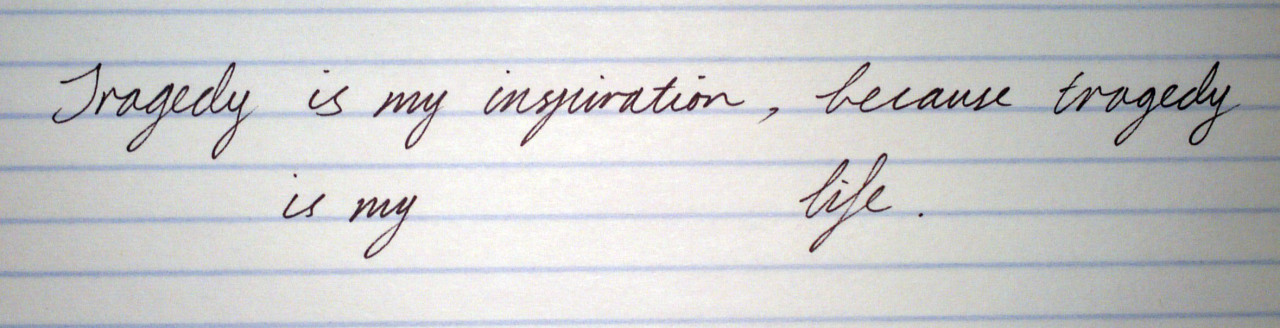 Tragedy is my inspiration, because tragedy
is my life.